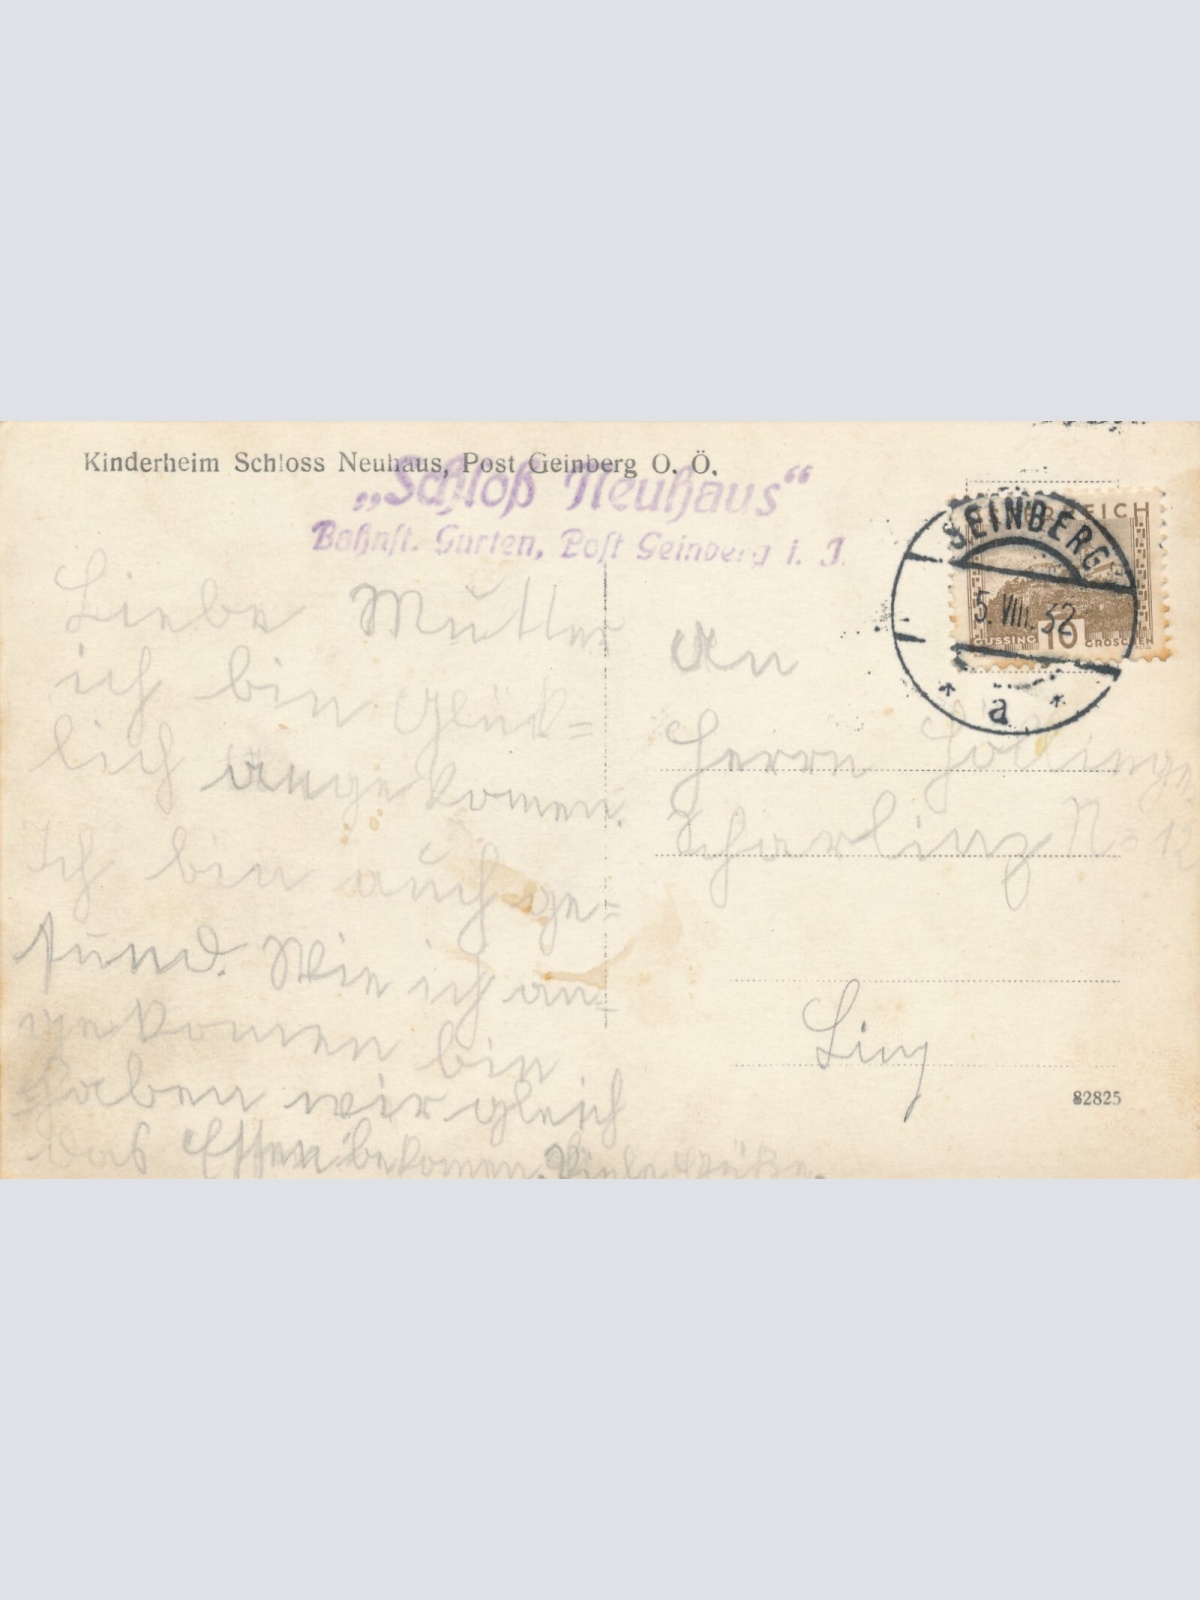 Kinderheim Schloss Neuhaus, Post Geinberg O. Ö.
„Schloß Neuhaus“
Bahnst. Gurten, Post Geinberg i. I.
Liebe Mutter
ich bin Glück=
lich angekomen.
Ich bin auch ge=
sund. Wie ich an=
gekomen bin
haben wir gleich
das Essen bekomen. Viele Grüße.
GEINBERG
5. VIII. 32
* a *
REICH
GÜSSING 10 GROSCHEN
An
Herrn Hollinger
Scharlinz No 12
Linz
82825